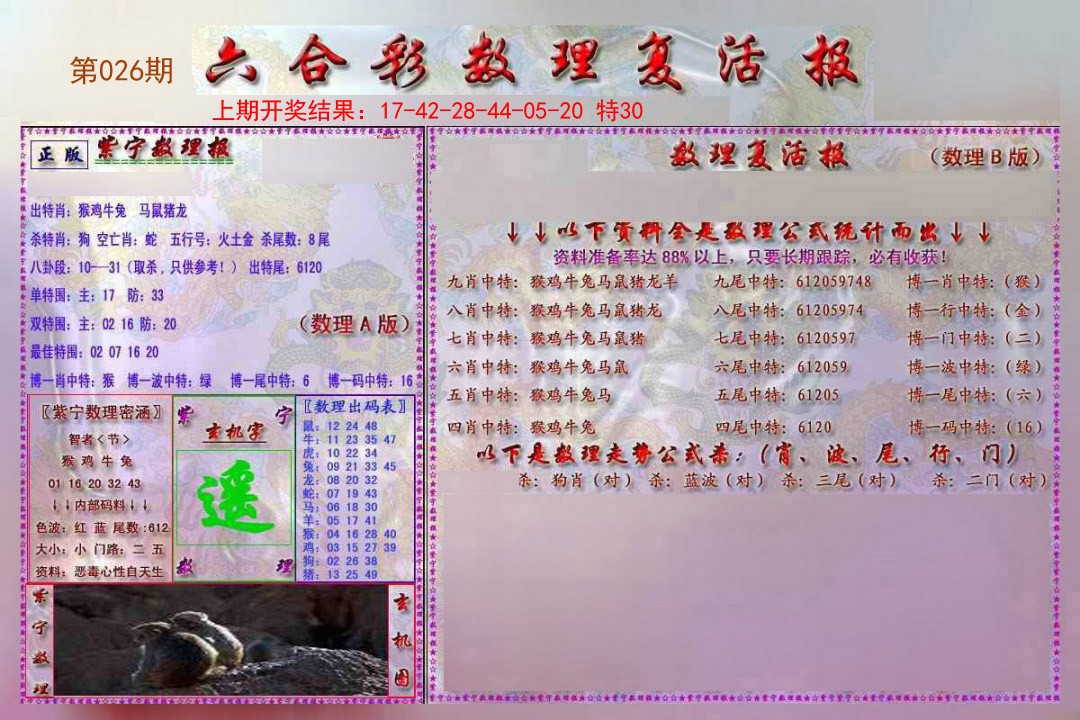 第026期
六合彩数理复活报
上期开奖结果：17-42-28-44-05-20 特30
正版 紫宁数理报
出特肖：猴鸡牛兔 马鼠猪龙
杀特肖：狗 空亡肖：蛇 五行号：火土金 杀尾数：8尾
八卦段：10--31（取杀，只供参考！） 出特尾：6120
单特围：主：17 防：33
双特围：主：02 16 防：20
（数理A版）
最佳特围：02 07 16 20
博一肖中特：猴 博一波中特：绿 博一尾中特：6 博一码中特：16
〖紫宁数理密涵〗
智者＜节＞
猴 鸡 牛 兔
01 16 20 32 43
↓↓内部码料↓↓
色波：红 蓝 尾数:612
大小：小 门路：二 五
资料：恶毒心性自天生
紫宁
玄机字
遥
数理
〖数理出码表〗
鼠：12 24 48
牛：11 23 35 47
虎：10 22 34
兔：09 21 33 45
龙：08 20 32
蛇：07 19 43
马：06 18 30
羊：05 17 41
猴：04 16 28 40
鸡：03 15 27 39
狗：02 26 38
猪：13 25 49
紫宁数理
玄机图
数理复活报
（数理B版）
↓↓以下资料全是数理公式统计而出↓↓
资料准备率达88%以上，只要长期跟踪，必有收获！
九肖中特：猴鸡牛兔马鼠猪龙羊 九尾中特：612059748 博一肖中特：（猴）
八肖中特：猴鸡牛兔马鼠猪龙 八尾中特：61205974 博一行中特：（金）
七肖中特：猴鸡牛兔马鼠猪 七尾中特：6120597 博一门中特：（二）
六肖中特：猴鸡牛兔马鼠 六尾中特：612059 博一波中特：（绿）
五肖中特：猴鸡牛兔马 五尾中特：61205 博一尾中特：（六）
四肖中特：猴鸡牛兔 四尾中特：6120 博一码中特：（16）
以下是数理走势公式杀：（肖、波、尾、行、门）
杀：狗肖（对） 杀：蓝波（对） 杀：三尾（对） 杀：二门（对）